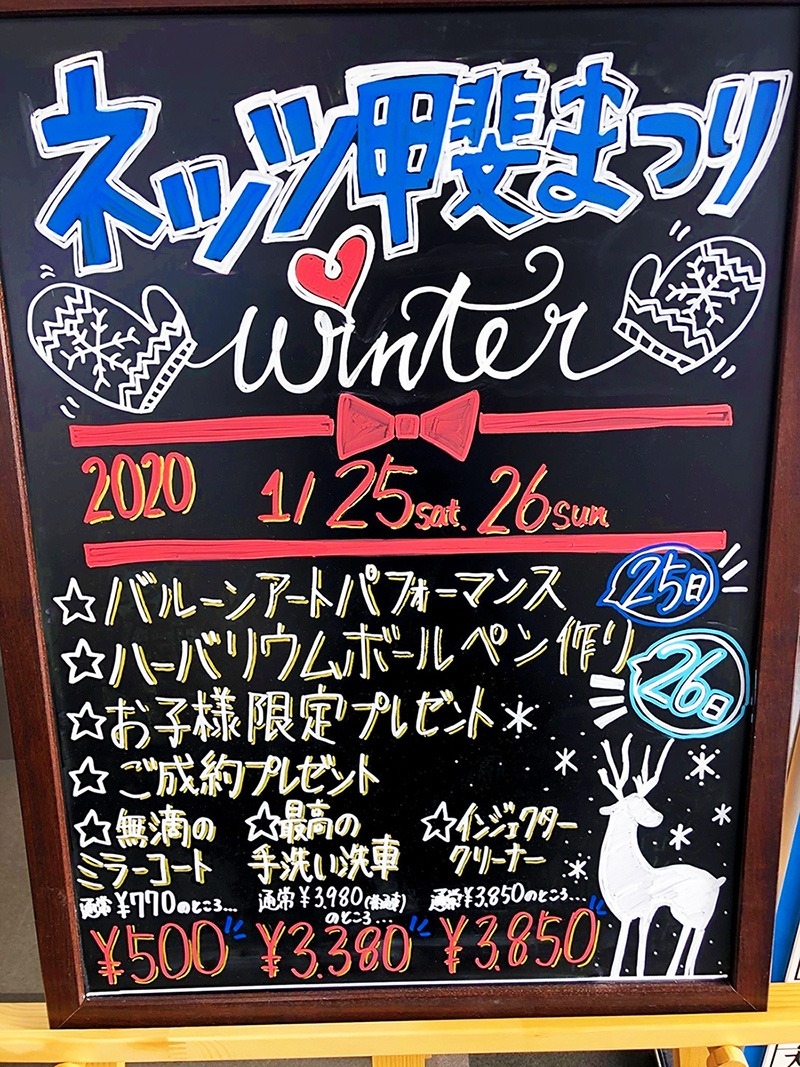 ネッツ甲斐まつり
winter
2020 1/25sat. 26sun
☆バルーンアートパフォーマンス 25日
☆ハーバリウムボールペン作り 26日
☆お子様限定プレゼント
☆ご成約プレゼント
☆無滴の
ミラーコート
通常¥770のところ...
¥500
☆最高の
手洗い洗車
通常¥3,980(普通車)
のところ...
¥3.380
☆インジェクター
クリーナー
通常¥3.850のところ...
¥3.850